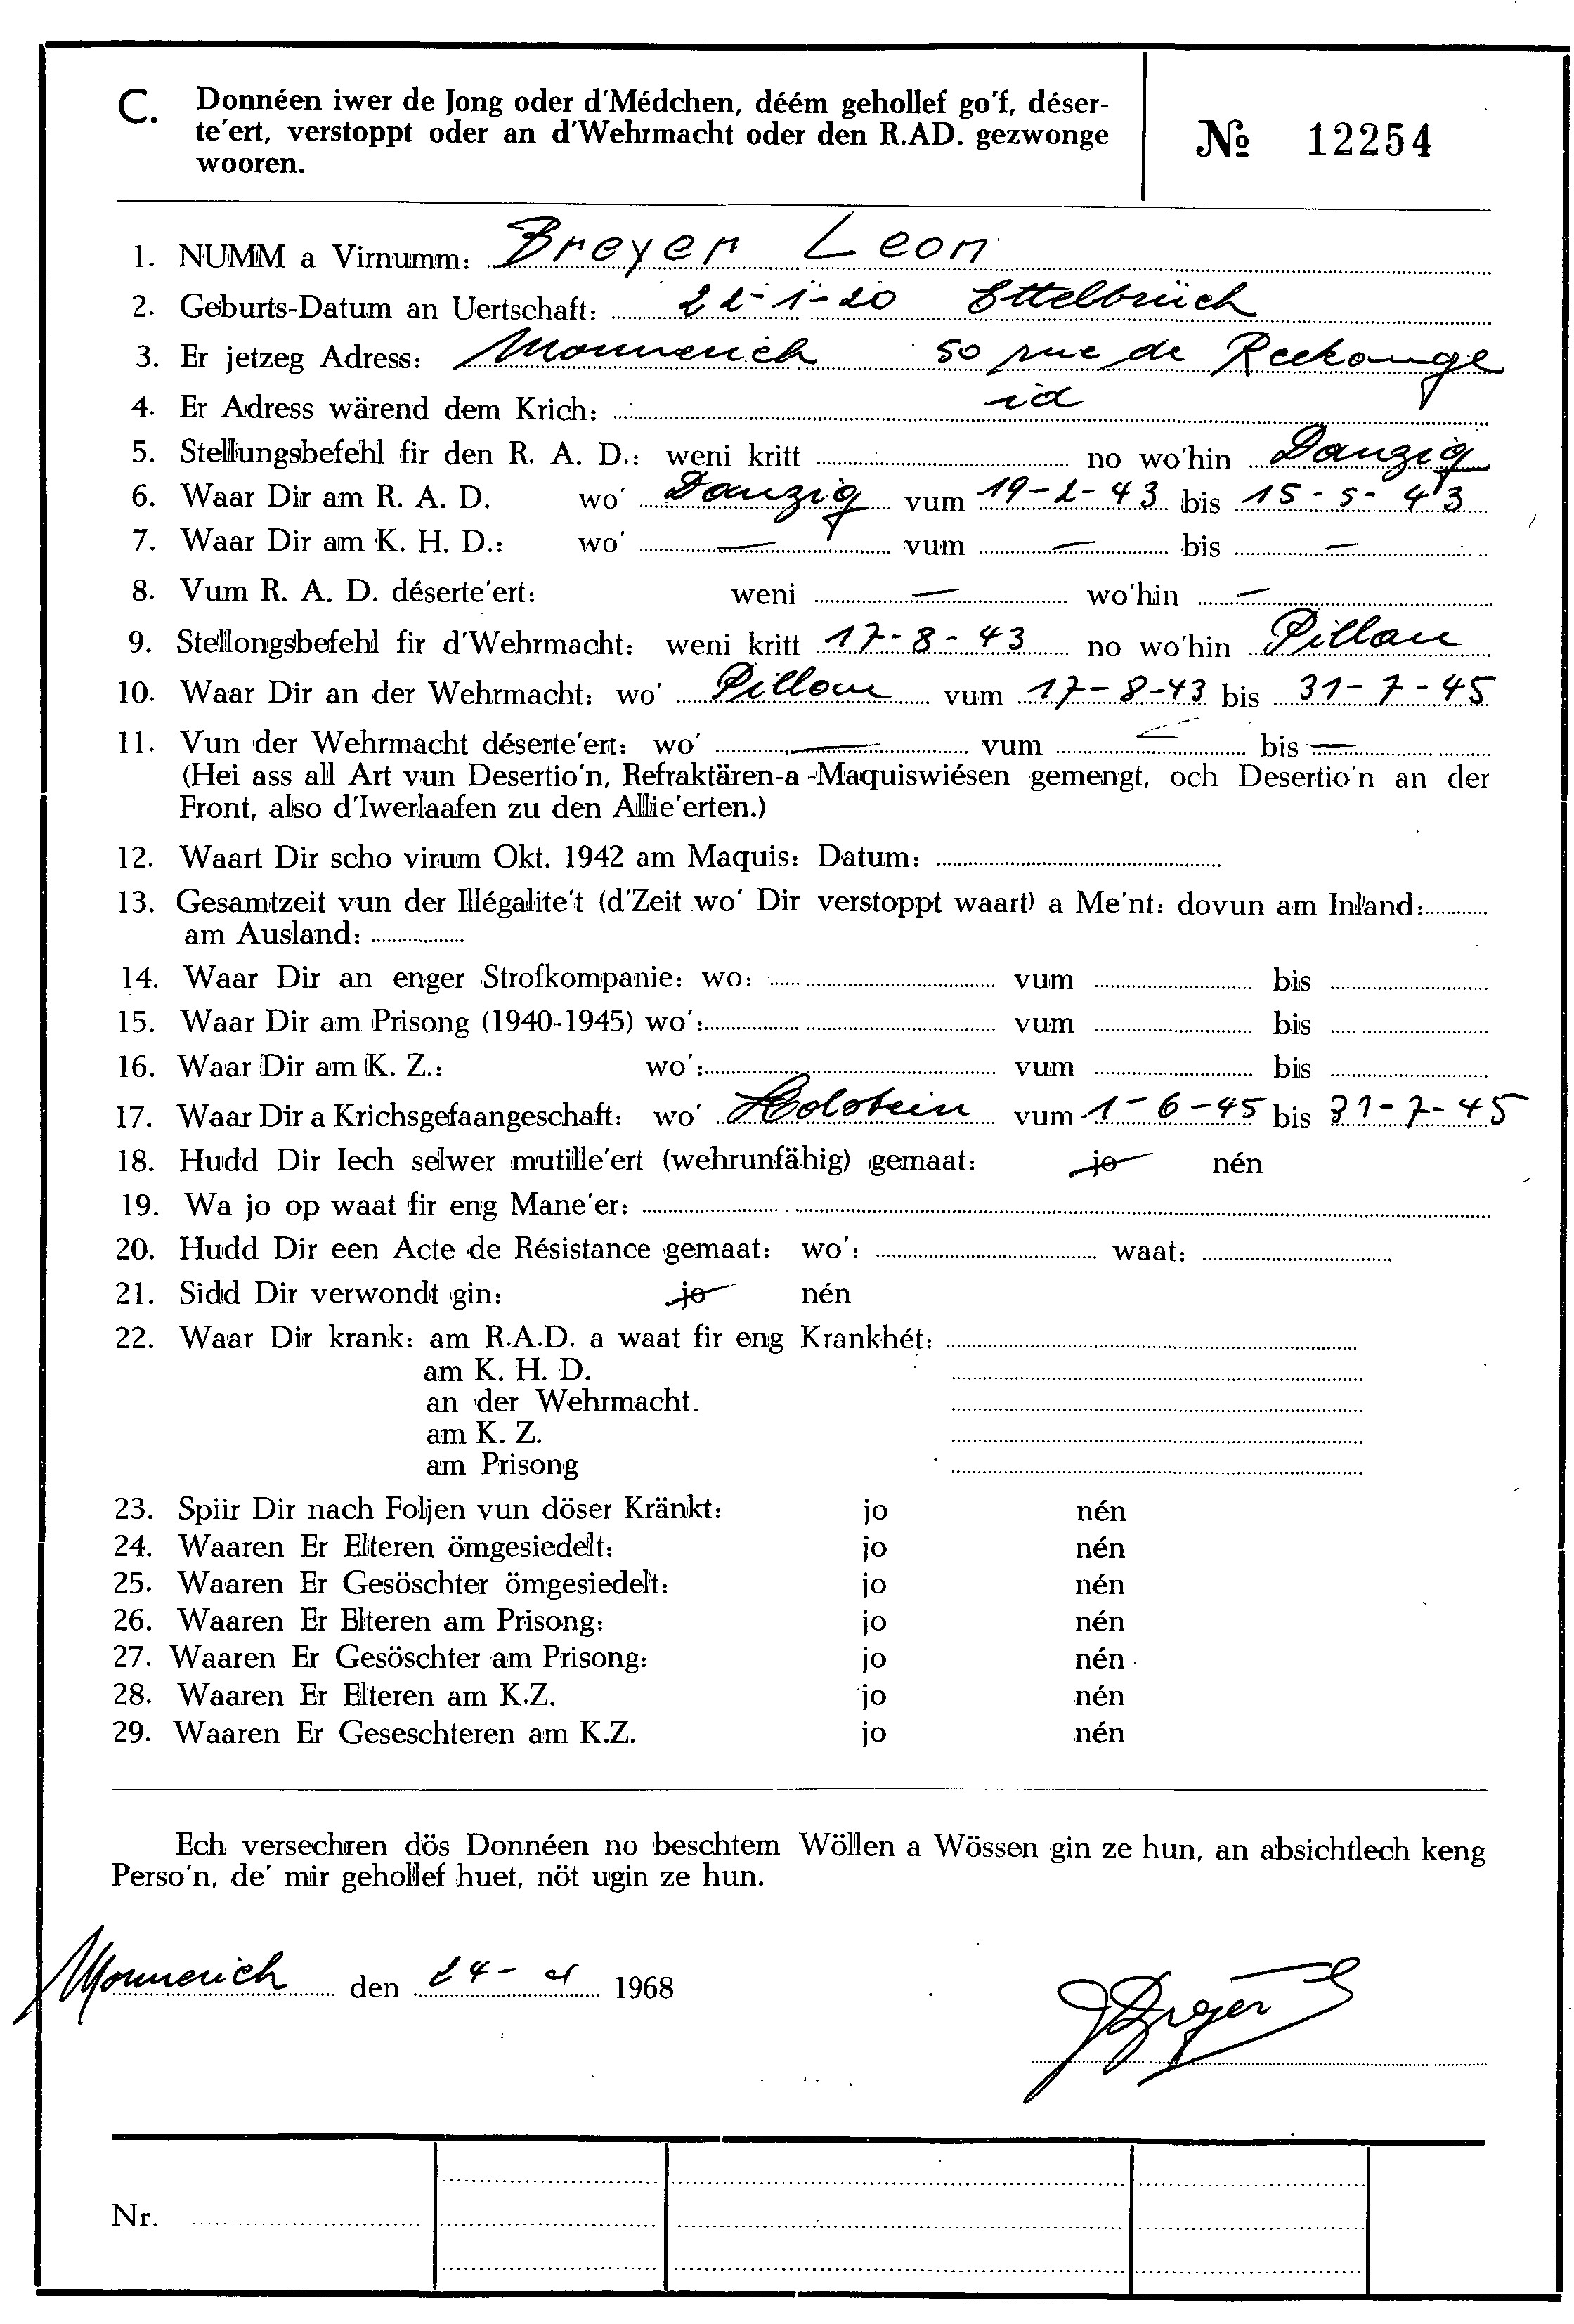 C. Donnéen iwer de Jong oder d'Médchen, déém gehollef go'f, déser-
te'ert, verstoppt oder an d'Wehrmacht oder den R.AD. gezwonge
wooren.
№ 12254
1. NUMM a Virnumm: Breyer Leon
2. Geburts-Datum an Uertschaft: 22-1-20 Ettelbrück
3. Er jetzeg Adress: Monnerich 50 rue de Reckange
4. Er Adress wärend dem Krich: id
5. Stellungsbefehl fir den R. A. D.: weni kritt no wo'hin Danzig
6. Waar Dir am R. A. D. wo' Danzig vum 19-2-43 bis 15-5-43
7. Waar Dir am K. H. D.: wo' — vum — bis —
8. Vum R. A. D. déserte'ert: weni — wo'hin —
9. Stellongsbefehl fir d'Wehrmacht: weni kritt 17-8-43 no wo'hin Pillau
10. Waar Dir an der Wehrmacht: wo' Pillau vum 17-8-43 bis 31-7-45
11. Vun der Wehrmacht déserte'ert: wo' — vum — bis —
(Hei ass all Art vun Desertio'n, Refraktären-a -Maquiswiésen gemengt, och Desertio'n an der
Front, also d'Iwerlaafen zu den Allie'erten.)
12. Waart Dir scho virum Okt. 1942 am Maquis: Datum:
13. Gesamtzeit vun der Illégalite't (d'Zeit wo' Dir verstoppt waart) a Me'nt: dovun am Inland:
am Ausland:
14. Waar Dir an enger Strofkompanie: wo: vum bis
15. Waar Dir am Prisong (1940-1945) wo': vum bis
16. Waar Dir am K. Z.: wo': vum bis
17. Waar Dir a Krichsgefaangeschaft: wo' Holstein vum 1-6-45 bis 31-7-45
18. Hudd Dir Iech selwer mutille'ert (wehrunfähig) gemaat: jo nén
19. Wa jo op waat fir eng Mane'er:
20. Hudd Dir een Acte de Résistance gemaat: wo': waat:
21. Sidd Dir verwondt gin: jo nén
22. Waar Dir krank: am R.A.D. a waat fir eng Krankhét:
am K. H. D.
an der Wehrmacht.
am K. Z.
am Prisong
23. Spiir Dir nach Foljen vun döser Kränkt: jo nén
24. Waaren Er Elteren ömgesiedelt: jo nén
25. Waaren Er Gesöschter ömgesiedelt: jo nén
26. Waaren Er Elteren am Prisong: jo nén
27. Waaren Er Gesöschter am Prisong: jo nén
28. Waaren Er Elteren am K.Z. jo nén
29. Waaren Er Geseschteren am K.Z. jo nén
Ech versechren dös Donnéen no beschtem Wöllen a Wössen gin ze hun, an absichtlech keng
Perso'n, de' mir gehollef huet, nöt ugin ze hun.
Monnerich den 24- 1968
Breyer
Nr.